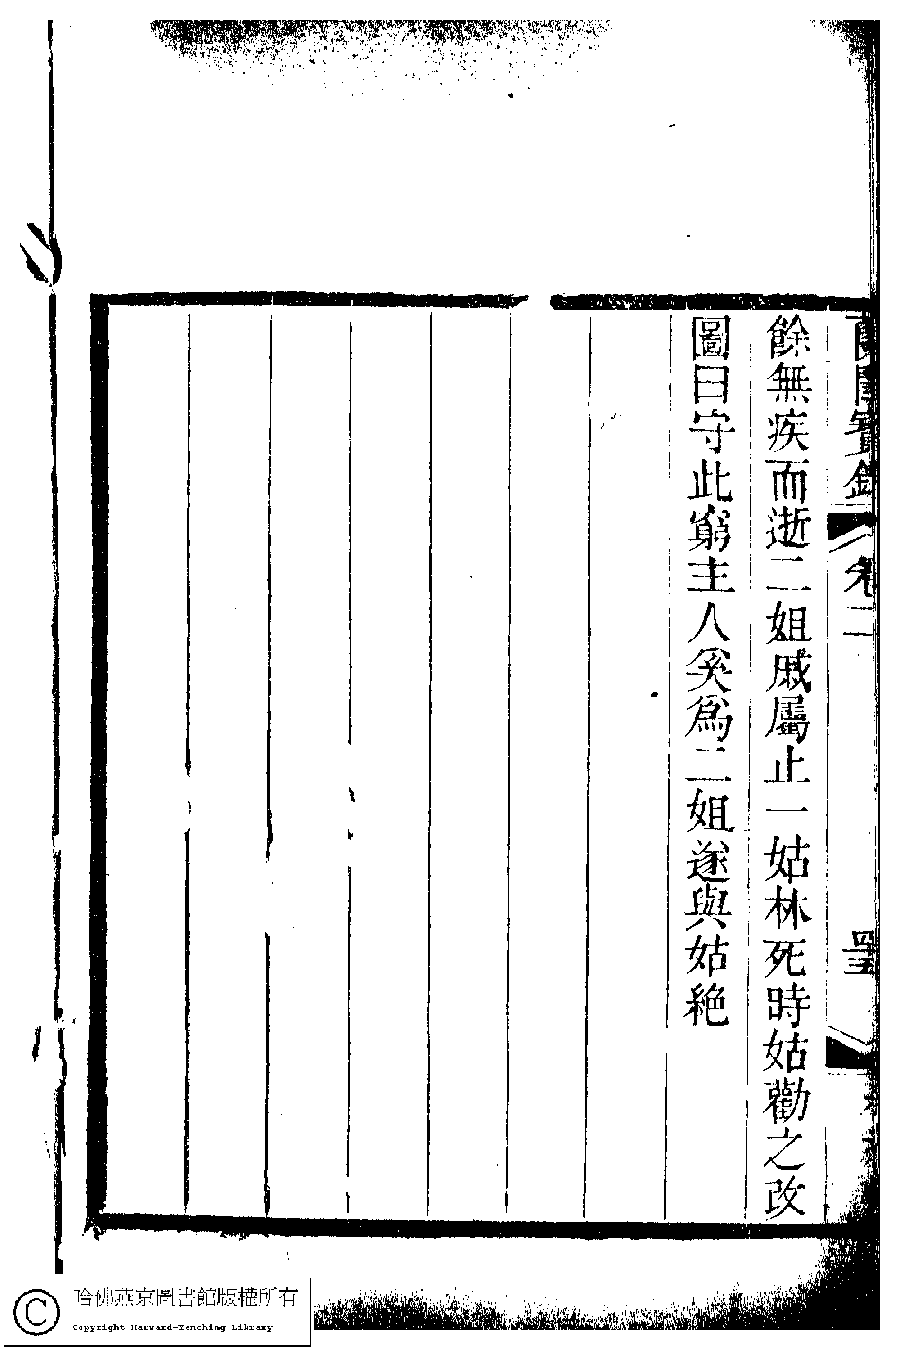 蘭閨寶錄 卷二 
餘無疾而逝二姐戚屬止一姑林死時姑勸之改
圖曰守此窮主人奚為二姐遂與姑絶
哈佛燕京圖書館版權所有
Copyright Harvard-Yenching Library